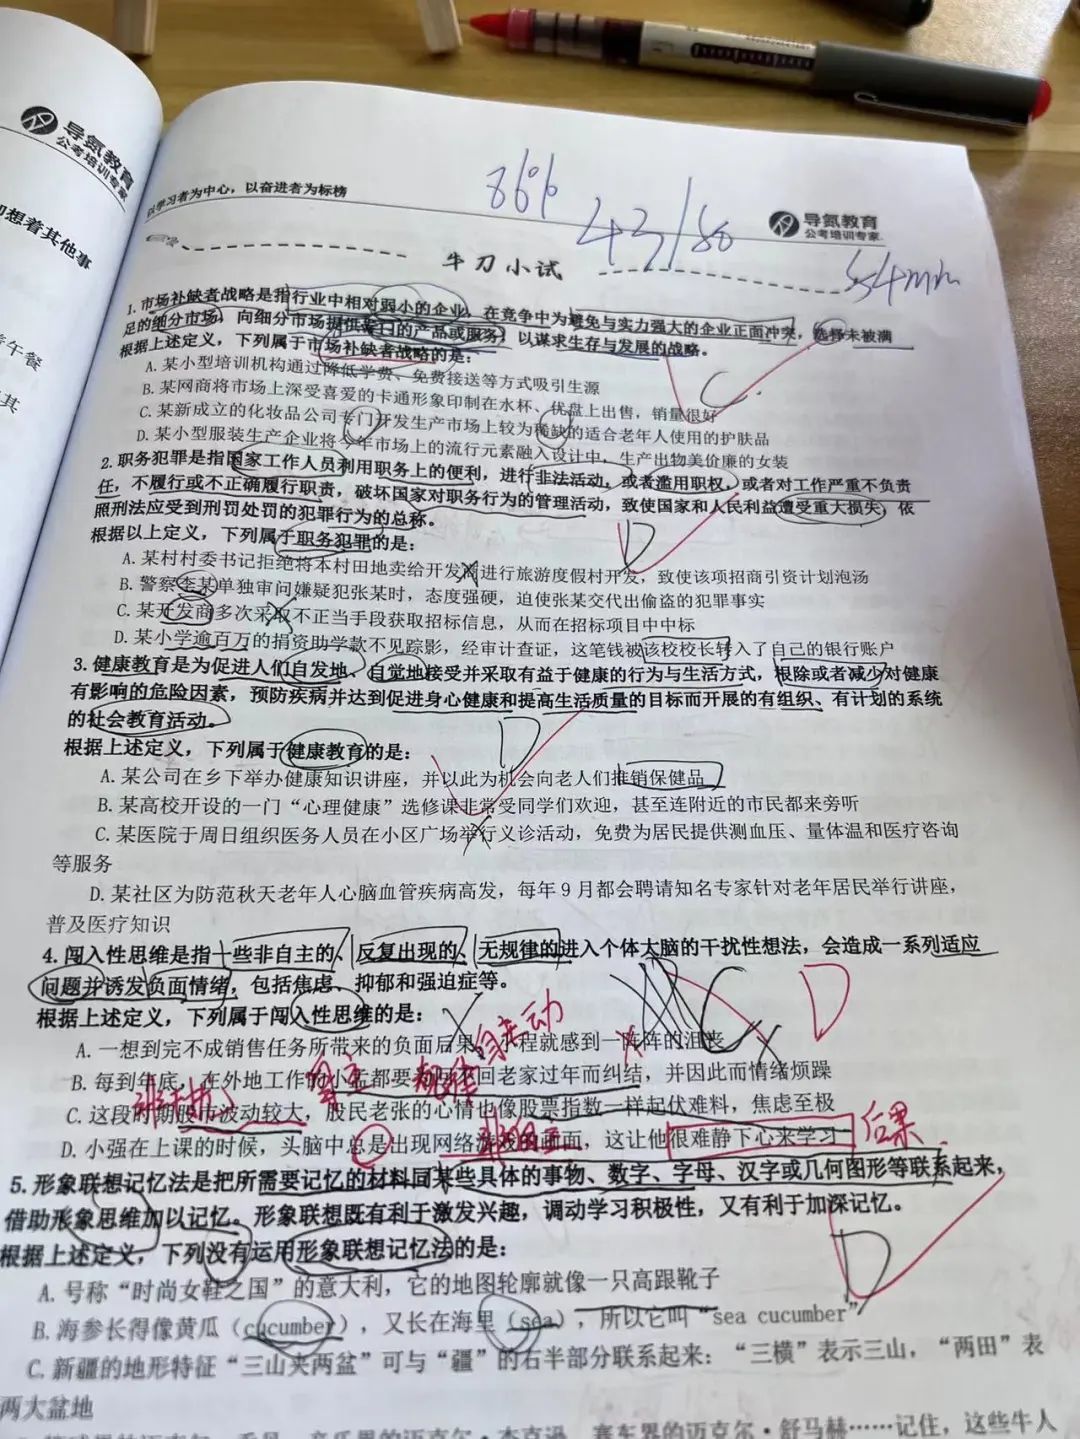 导氮教育
公考培训专家
以学习者为中心，以奋进者为标榜
86%
43/50
导氮教育
公考培训专家
54min
想着其他事
午餐
其
牛刀小试
1. 市场补缺者战略是指行业中相对弱小的企业，在竞争中为避免与实力强大的企业正面冲突，选择未被满
足的细分市场，向细分市场提供专门的产品或服务，以谋求生存与发展的战略。
根据上述定义，下列属于市场补缺者战略的是：
C
A. 某小型培训机构通过降低学费、免费接送等方式吸引生源
B. 某网商将市场上深受喜爱的卡通形象印制在水杯、优盘上出售，销量很好
C. 某新成立的化妆品公司专门开发生产市场上较为稀缺的适合老年人使用的护肤品
D. 某小型服装生产企业将今年市场上的流行元素融入设计中，生产出物美价廉的女装
2. 职务犯罪是指国家工作人员利用职务上的便利，进行非法活动，或者滥用职权，或者对工作严重不负责
任，不履行或不正确履行职责，破坏国家对职务行为的管理活动，致使国家和人民利益遭受重大损失，依
照刑法应受到刑罚处罚的犯罪行为的总称。
根据以上定义，下列属于职务犯罪的是：
D
A. 某村村委书记拒绝将本村田地卖给开发商进行旅游度假村开发，致使该项招商引资计划泡汤
B. 警察李某单独审问嫌疑犯张某时，态度强硬，迫使张某交代出偷盗的犯罪事实
C. 某开发商多次采取不正当手段获取招标信息，从而在招标项目中中标
D. 某小学逾百万的捐资助学款不见踪影，经审计查证，这笔钱被该校校长转入了自己的银行账户
3. 健康教育是为促进人们自发地、自觉地接受并采取有益于健康的行为与生活方式，根除或者减少对健康
有影响的危险因素，预防疾病并达到促进身心健康和提高生活质量的目标而开展的有组织、有计划的系统
的社会教育活动。
根据上述定义，下列属于健康教育的是：
D
A. 某公司在乡下举办健康知识讲座，并以此为机会向老人们推销保健品
B. 某高校开设的一门“心理健康”选修课非常受同学们欢迎，甚至连附近的市民都来旁听
C. 某医院于周日组织医务人员在小区广场举行义诊活动，免费为居民提供测血压、量体温和医疗咨询
等服务
D. 某社区为防范秋天老年人心脑血管疾病高发，每年 9 月都会聘请知名专家针对老年居民举行讲座，
普及医疗知识
4. 闯入性思维是指一些非自主的、反复出现的、无规律的进入个体大脑的干扰性想法，会造成一系列适应
问题并诱发负面情绪，包括焦虑、抑郁和强迫症等。
根据上述定义，下列属于闯入性思维的是：
C
D
A. 一想到完不成销售任务所带来的负面后果，小程就感到一阵阵的沮丧
B. 每到年底，在外地工作的小孟都要为回不回老家过年而纠结，并因此而情绪烦躁
C. 这段时期股市波动较大，股民老张的心情也像股票指数一样起伏难料，焦虑至极
D. 小强在上课的时候，头脑中总是出现网络游戏的画面，这让他很难静下心来学习
后果
5. 形象联想记忆法是把所需要记忆的材料同某些具体的事物、数字、字母、汉字或几何图形等联系起来，
借助形象思维加以记忆。形象联想既有利于激发兴趣，调动学习积极性，又有利于加深记忆。
根据上述定义，下列没有运用形象联想记忆法的是：
D
A. 号称“时尚女鞋之国”的意大利，它的地图轮廓就像一只高跟靴子
B. 海参长得像黄瓜（cucumber），又长在海里（sea），所以它叫“sea cucumber”
C. 新疆的地形特征“三山夹两盆”可与“疆”的右半部分联系起来：“三横”表示三山，“两田”表
两大盆地
迈克尔·杰克逊、赛车界的迈克尔·舒马赫……记住，这些牛人